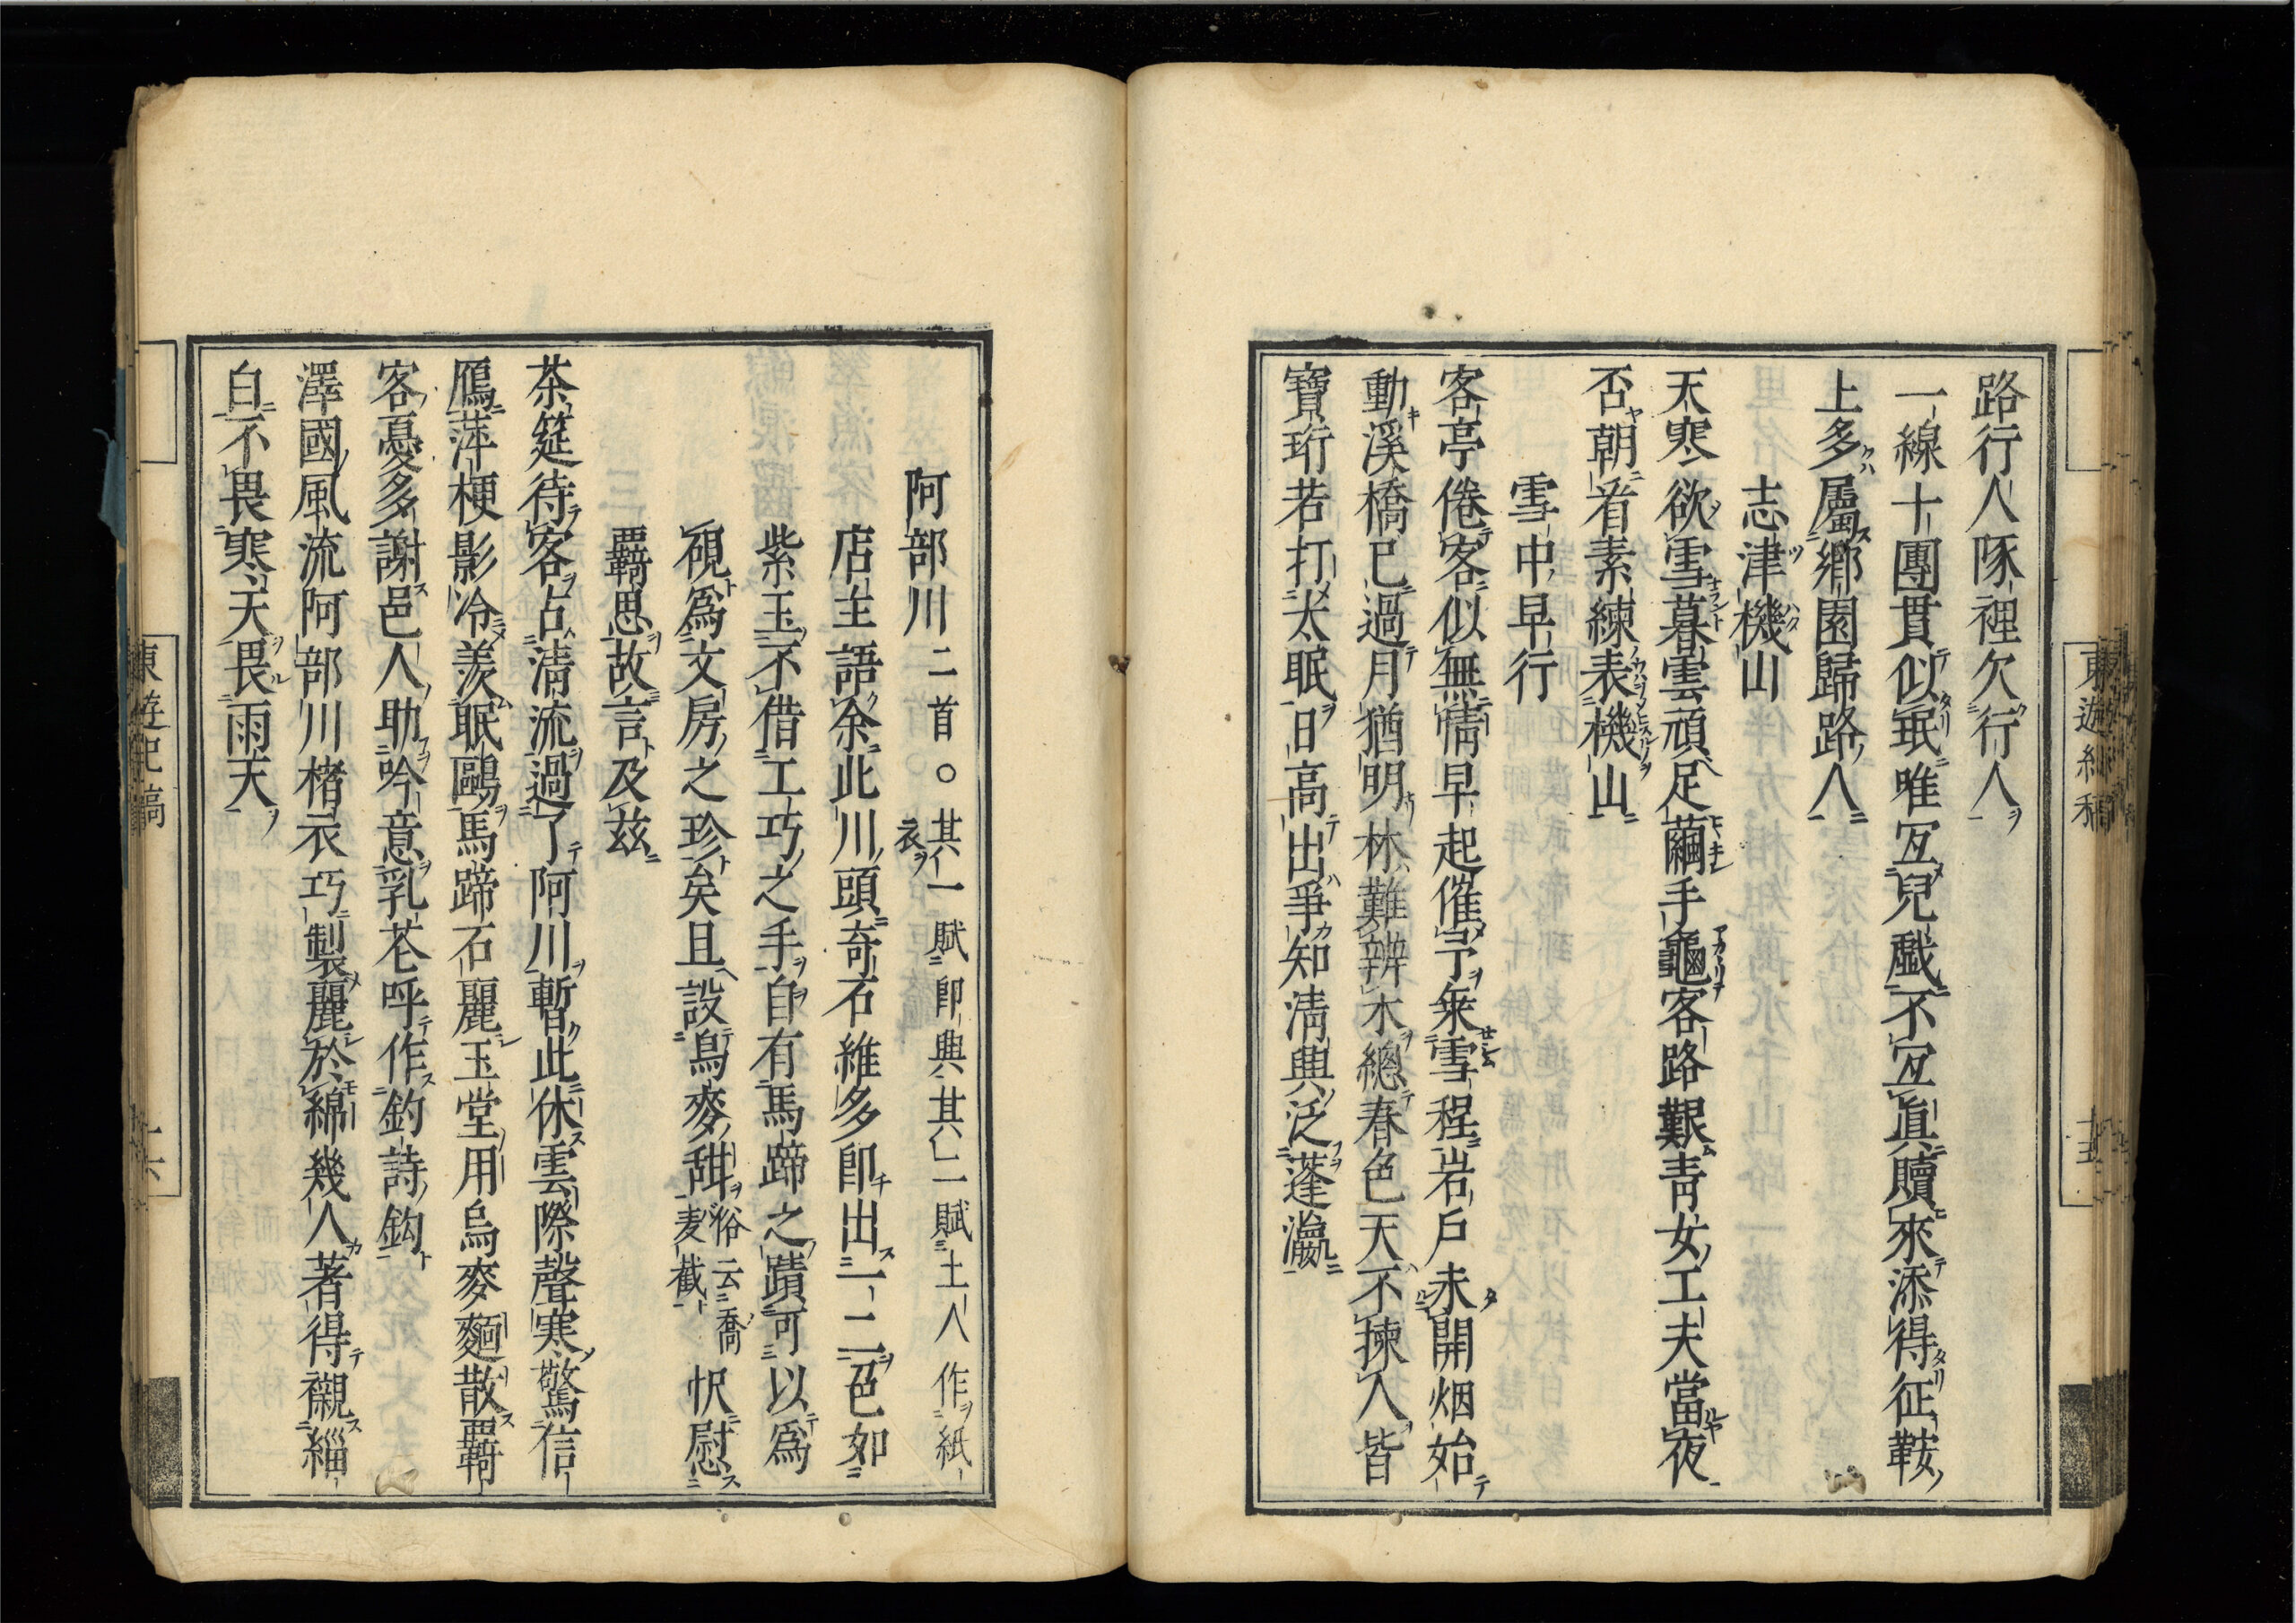 路行人啄裡欠行人
一線十團貫似珉唯宜兒戯不宜眞贖來添得征鞍
上多屬鄕園歸路人
志津機山
天寒欲雪暮雲頑足繭手龜客路艱靑女工夫當夜
否朝看素練表機山
雪中早行
客亭倦客似無情早起催予乘雪程岩戶未開烟始
動溪橋已過月猶明林難辨木總春色天不揀人皆
寶珩若打太眠日高出爭知淸興泛蓬瀛
東遊紀稿
十五
阿部川二首○其一賦卽興其二賦土人作紙
衣
店主語余此川頭奇石維多卽出一二色如
紫玉不借工巧之手自有馬蹄之蹟可以爲
硯爲文房之珍矣且設烏麥甜俗云喬
麦截
怾慰
羈思故言及茲
茶筵待客占淸流過了阿川暫此休雲際聲寒驚信
鴈萍梗影冷羨眠鷗馬蹄石麗玉堂用烏麥麵散羈
客憂多謝邑人助吟意乳芲呼作釣詩鈎
澤國風流阿部川楮衣巧製麗於綿幾人著得襯緇
白不畏寒天畏雨天
東遊紀稿
十六